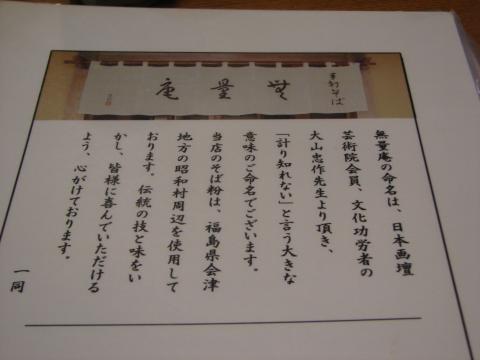 手打そば
無量庵
無量庵の命名は、日本画壇
芸術院会員、文化功労者の
大山忠作先生より頂き、
「計り知れない」と言う大きな
意味のご命名でございます。
当店のそば粉は、福島県会津
地方の昭和村周辺を使用して
おります。伝統の技と味をい
かし、皆様に喜んでいただける
よう、心がけております。
一同